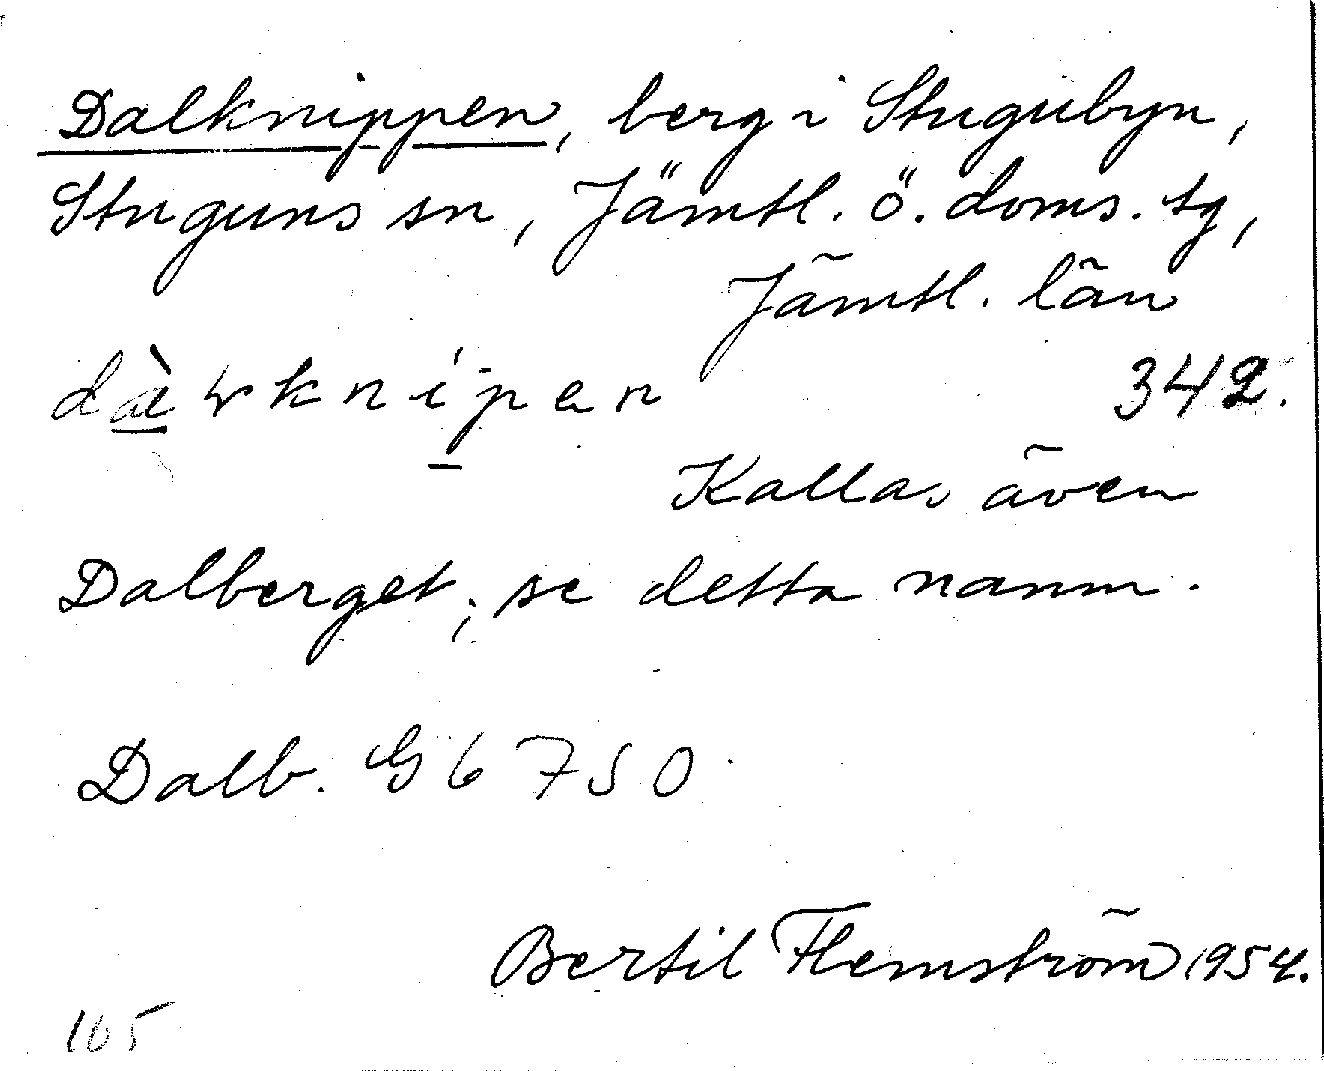 Dalknippen, berg i Stugubyn,
Stuguns sn, Jämtl. ö. doms. tg,
Jämtl. län
342.
Kallas även
Dalberget; se detta namn.
Dalb. G6 750
Bertil Flemström 1954.
105